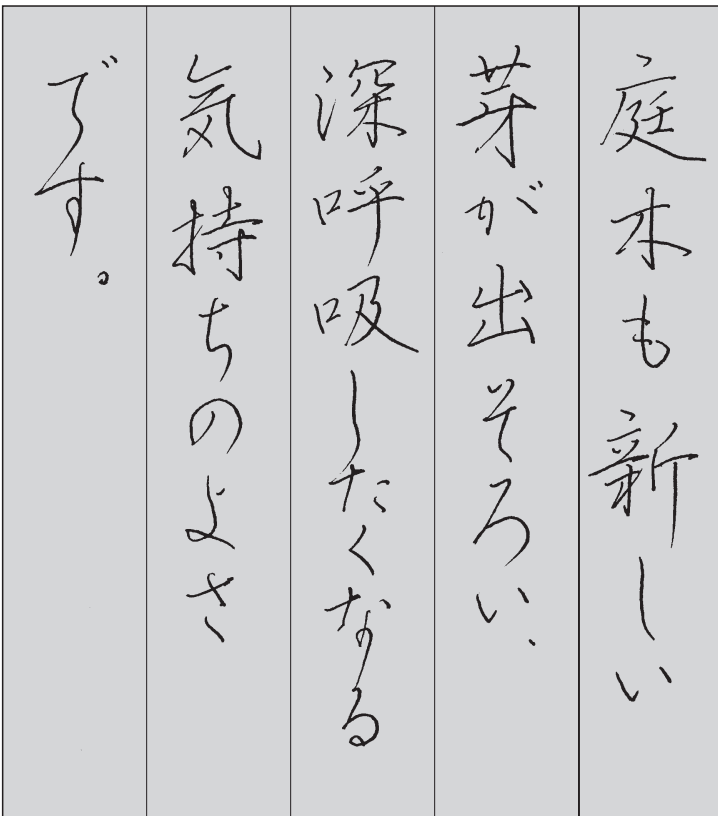 庭木も新しい
芽が出そろい、
深呼吸したくなる
気持ちのよさ
です。